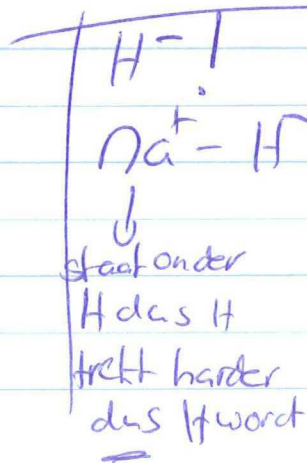 H⁻!
Na⁺ - H⁻
↓
staat onder
H dus H
trekt harder
dus H word
-